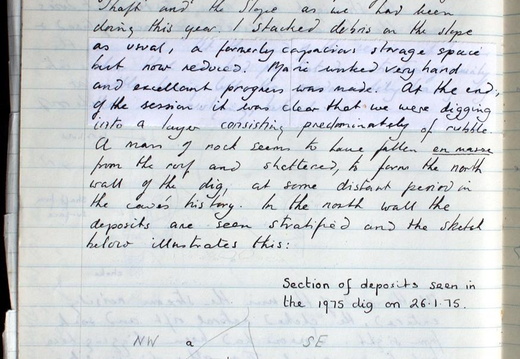 Shaft and the slope as we had been
doing this year. I stacked debris on the slope
as usual, a formerly capacious storage space
but now reduced. Marie worked very hard
and excellent progress was made. At the end,
of the session it was clear that we were digging
into a layer consisting predominately of rubble.
A mass of rock seems to have fallen en masse
from the roof and shattered, to form the north
wall of the dig, at some distant period in
the cave's history. In the north wall the
deposits are seen stratified and the sketch
below illustrates this:
Section of deposits seen in
the 1975 dig on 26.1.75.
NW a SE